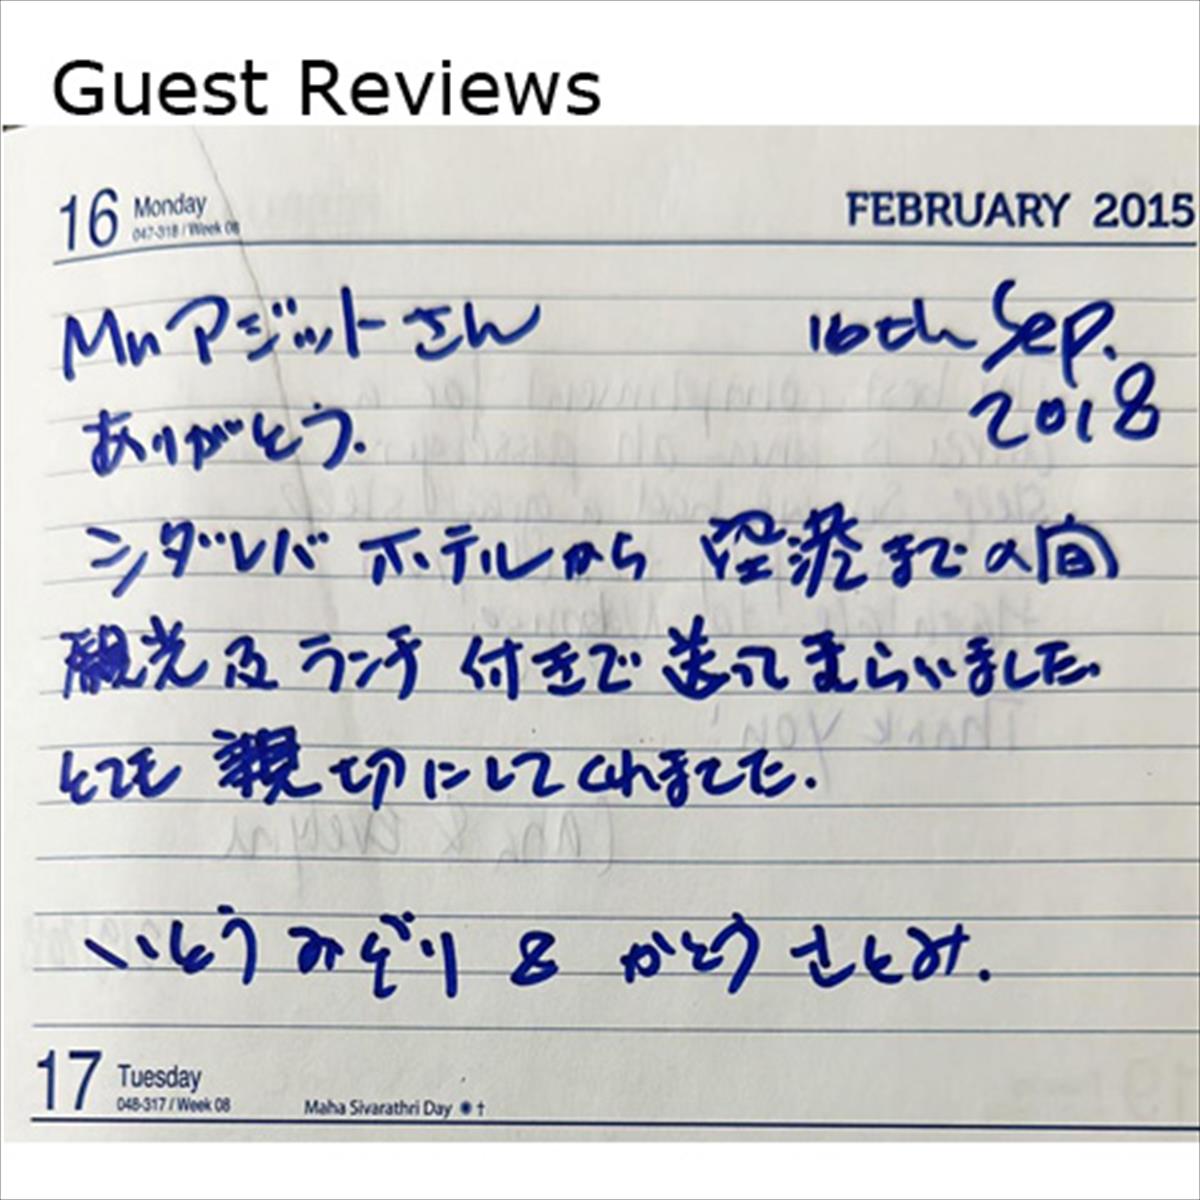 Guest Reviews
16 Monday FEBRUARY 2015
047-318 / Week 08
Mr アジットさん 16th Sep.
2018
ありがとう.
シダレバ ホテルから 空港までの間
観光及ランチ付きで送ってもらいました.
とても親切にしてくれました.
いとうみどり & かとうさとみ.
17 Tuesday
048-317 / Week 08 Maha Sivarathri Day